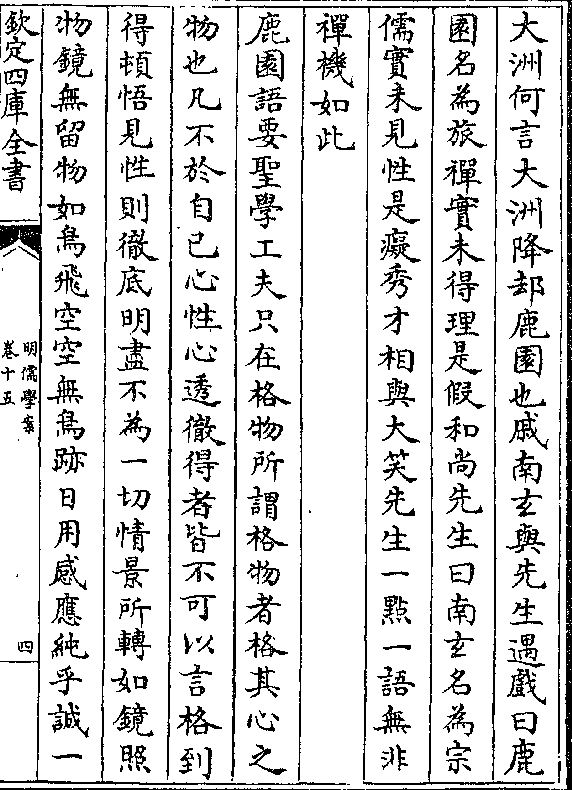 大洲何言大洲降却鹿園也戚南𤣥與先生遇戲曰鹿
園名為旅禪實未得理是假和尚先生曰南𤣥名為宗
儒實未見性是癡秀才相與大笑先生一㸃一語無非
禪機如此
鹿園語要聖學工夫只在格物所謂格物者格其心之
物也凡不於自己心性心透徹得者皆不可以言格到
得頓悟見性則徹底明盡不為一切情景所轉如鏡照
物鏡無留物如鳥飛空空無鳥跡日用感應純乎誠一
欽定四庫全書
明儒學案
卷十五
四